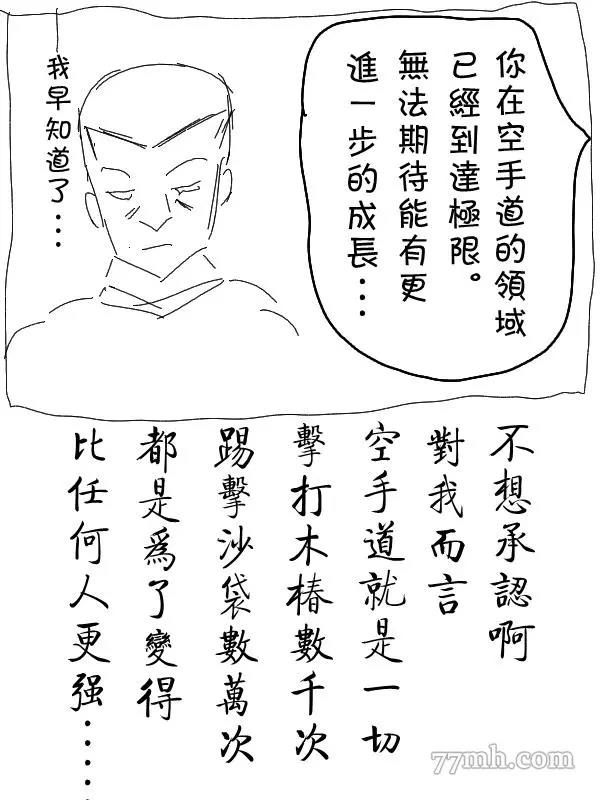 你在空手道的領域
已經到達極限。
無法期待能有更
進一步的成長…
我早知道了…
不想承認啊
對我而言
空手道就是一切
擊打木樁數千次
踢擊沙袋數萬次
都是為了變得
比任何人更强……
77mh.com